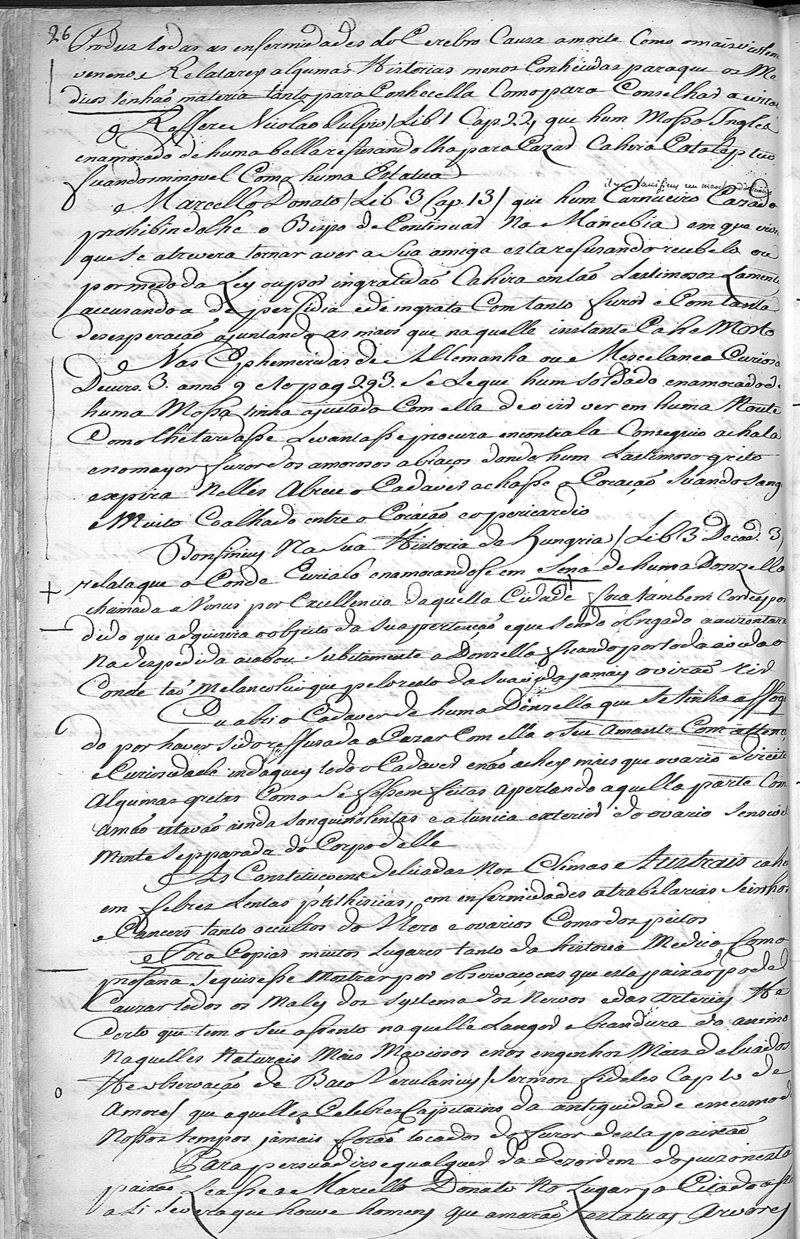 26
Produs todas as enfermidades do Cerebro Causa a morte Como o mais violento
veneno e Relatarey algumas Historias menos Conhecidas para que os Me
dicos tenhaõ materia tanto para Conhecella Como para Conselhar a evitar
Reffere Nicolao Tulpio / Lib 1 Cap. 22 / que hum Mosso Ingles
enamorado de huma bella refusando lha para Cazar Cahira Cataleptico
ficando immovel Como huma Estatua
e Marcello Donato / Lib 3 Cap. 13 / que hum Carniceiro Cazado
prohibindolhe o Bispo de Continuar Na Mancebia em que vivia
que se atrevera tornar a ver a sua amiga esta refusando recebelo ou
por medo da Ley ou por ingratidaõ Cahira em taõ Lastimosos Lamentos
accusandoa de perfidia e de ingrata Com tanto furor e Com tanta
desesperaçaõ ajuntando as maos que naquelle instante Cahe Morto
Nas Ephemeridas de Allemanha ou e Mescelanea Curiosa
Decurs. 3. anno 9 e 10 pag 293. se Le que hum soldado enamorado de
huma Mossa tinha ajustado Com ella de o vir ver em huma Noute
Como lhe tardasse Levantasse e procura encontrala Conseguio achala
e no mayor furor dos amorosos abraços dando hum Lastimoso grito
expira Nelles Abreu o Cadaver achasse o Coraçaõ Suando Sang
e Muito Coalhado entre o Coraçaõ e o pericardio
Bonfinius Na sua Historia da Hungria / Lib 3 Decad. 3 /
relata que o Conde Eurialo enamorandose em Sena de huma Donzella
chamada a Venus por Excellencia daquella Cidade fora também Correspon
dido que adquirira o objecto da sua pertençaõ e que sendo obrigado a auzentarse
Na despedida acabou subitamente a Donzella ficando por toda a vida o
Conde taõ Melancolico que pelo resto da sua vida jamais o viraõ Rir
Eu abri o Cadaver de huma Donzella que se tinha affoga
do por haver sido reffusada a Cazar Com ella o seu Amante Com attençaõ
e Curiosidade indaguey todo o Cadaver e naõ achey mais que o ovario direito
Algumas gretas Como Se fossem feitas apertando aquella parte Com
a maõ estavaõ ainda sanguinolentas e a tunica exterior do ovario sensivel
mente sepparada do Corpo delle
As Constituicoens delicadas Nos Climas e Austrais cahe
em febres Lentas phthisicas, em enfermidades atrabilarias Scirrhos
e Cancers tanto ocultos do Utero e ovarios Como dos peitos
e Fora Copiar muitos Lugares tanto da historia Medica Como
profana se quisesse Mostrar por observaçoens que esta paixaõ pode
Causar todos os Males dos Systema dos Nervos e das arterias He
Certo que tem o seu assento naquelle Langor e brandura do animo
Naquelles Naturais Mais Maviosos e nos engenhos Mais delicados
He observaçaõ de Baco Verulamius / Sermon. fideles Cap 10 de
Amore / que aquelles Celebres Capitains da antiguidade e mesmo de
Nossos tempos jamais foraõ tocados do furor desta paixaõ
Para persuadirse qualquer da dezordem do juizo nesta
paixaõ Leasse a Marcello Donato No Lugar ja Citado
ali se vera que houve homens que amaraõ estatuas Arvores